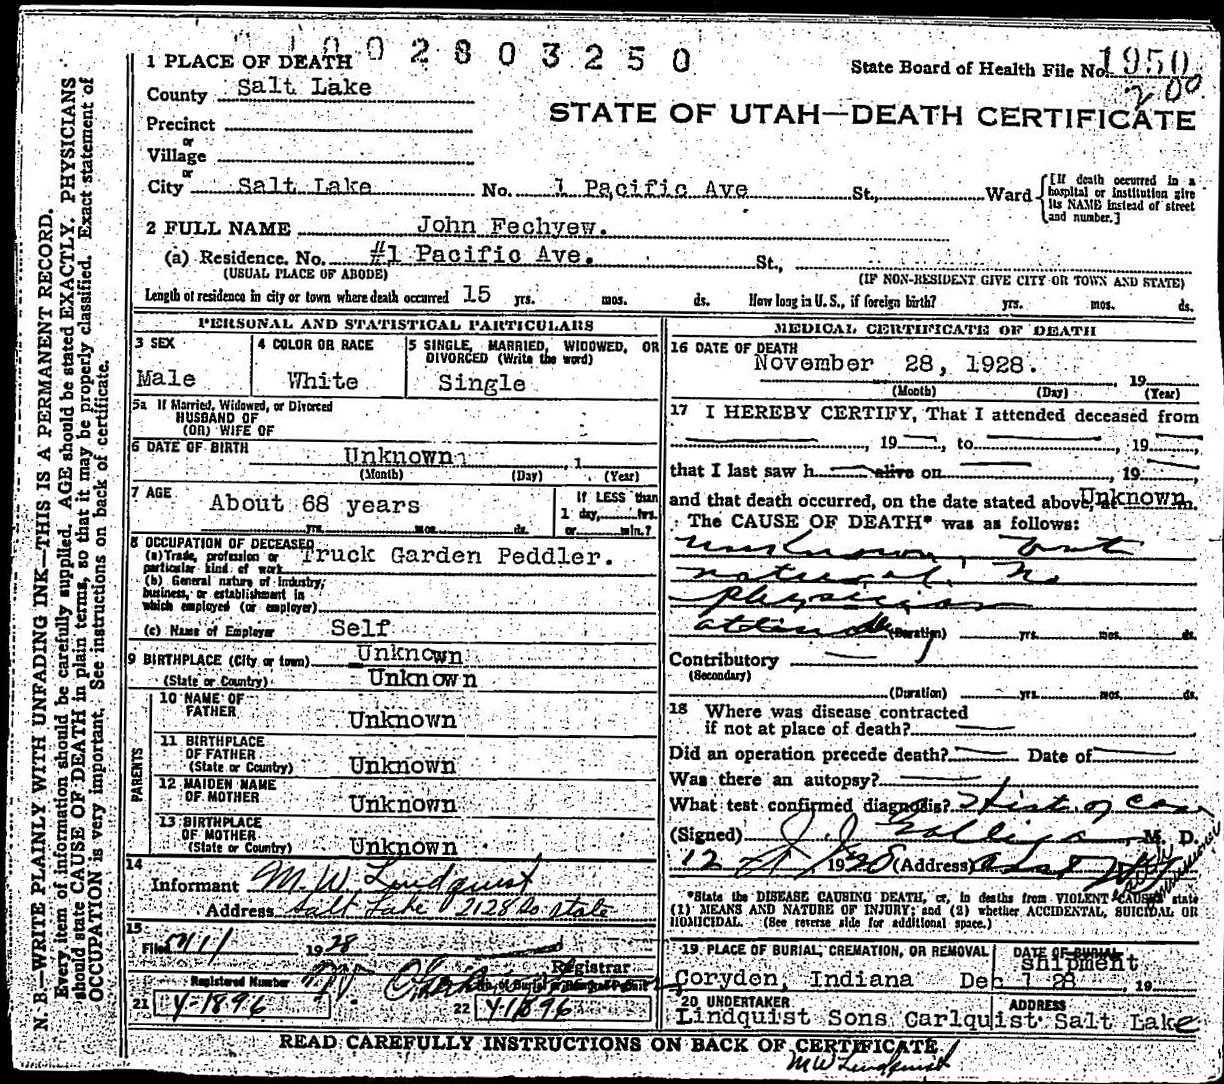 1002803250
1 PLACE OF DEATH
State Board of Health File No. 1950
200
County Salt Lake
STATE OF UTAH—DEATH CERTIFICATE
Precinct
or
Village
or
City Salt Lake No. 1 Pacific Ave St., Ward
[If death occurred in a hospital or institution give its NAME instead of street and number.]
2 FULL NAME John Fechyew.
(a) Residence. No. #1 Pacific Ave. St.,
(USUAL PLACE OF ABODE) (IF NON-RESIDENT GIVE CITY OR TOWN AND STATE)
Length of residence in city or town where death occurred 15 yrs. mos. ds. How long in U. S., if foreign birth? yrs. mos. ds.
PERSONAL AND STATISTICAL PARTICULARS
3 SEX
Male
4 COLOR OR RACE
White
5 SINGLE, MARRIED, WIDOWED, OR
DIVORCED (Write the word)
Single
5a If Married, Widowed, or Divorced
HUSBAND OF
(OR) WIFE OF
6 DATE OF BIRTH Unknown , 1
(Month) (Day) (Year)
7 AGE About 68 years
yrs. mos. ds.
If LESS than
1 day, hrs.
or min.?
8 OCCUPATION OF DECEASED
(a) Trade, profession or
particular kind of work Truck Garden Peddler.
(b) General nature of industry,
business, or establishment in
which employed (or employer)
(c) Name of Employer Self
9 BIRTHPLACE (City or town) Unknown
(State or Country) Unknown
PARENTS
10 NAME OF
FATHER Unknown
11 BIRTHPLACE
OF FATHER
(State or Country) Unknown
12 MAIDEN NAME
OF MOTHER Unknown
13 BIRTHPLACE
OF MOTHER
(State or Country) Unknown
14
Informant M. W. Lindquist
Address Salt Lake 2128 So. State
15
Filed 1928
Registrar
Registered Number
No. of Burial or Removal Permit
21 Y-1896
22 Y-1896
MEDICAL CERTIFICATE OF DEATH
16 DATE OF DEATH
November 28, 1928. , 19
(Month) (Day) (Year)
17 I HEREBY CERTIFY, That I attended deceased from
, 19 , to , 19
that I last saw h alive on , 19
and that death occurred, on the date stated above, at Unknown m.
The CAUSE OF DEATH* was as follows:
unknown but
natural. No
physician
attending
(Duration) yrs. mos. ds.
Contributory
(Secondary)
(Duration) yrs. mos. ds.
18 Where was disease contracted
if not at place of death?
Did an operation precede death? Date of
Was there an autopsy?
What test confirmed diagnosis? Hist. of case
(Signed) J. J. Galligan, M. D.
12 1928 (Address)
*State the DISEASE CAUSING DEATH, or, in deaths from VIOLENT CAUSES state
(1) MEANS AND NATURE OF INJURY; and (2) whether ACCIDENTAL, SUICIDAL OR
HOMICIDAL. (See reverse side for additional space.)
19 PLACE OF BURIAL, CREMATION, OR REMOVAL
DATE OF BURIAL
shipment
Corydon, Indiana Dec 1 28 , 19
20 UNDERTAKER ADDRESS
Lindquist Sons Carlquist Salt Lake
READ CAREFULLY INSTRUCTIONS ON BACK OF CERTIFICATE
M W Lindquist
N. B.—WRITE PLAINLY WITH UNFADING INK—THIS IS A PERMANENT RECORD.
Every item of information should be carefully supplied. AGE should be stated EXACTLY. PHYSICIANS
should state CAUSE OF DEATH in plain terms, so that it may be properly classified. Exact statement of
OCCUPATION is very important. See instructions on back of certificate.